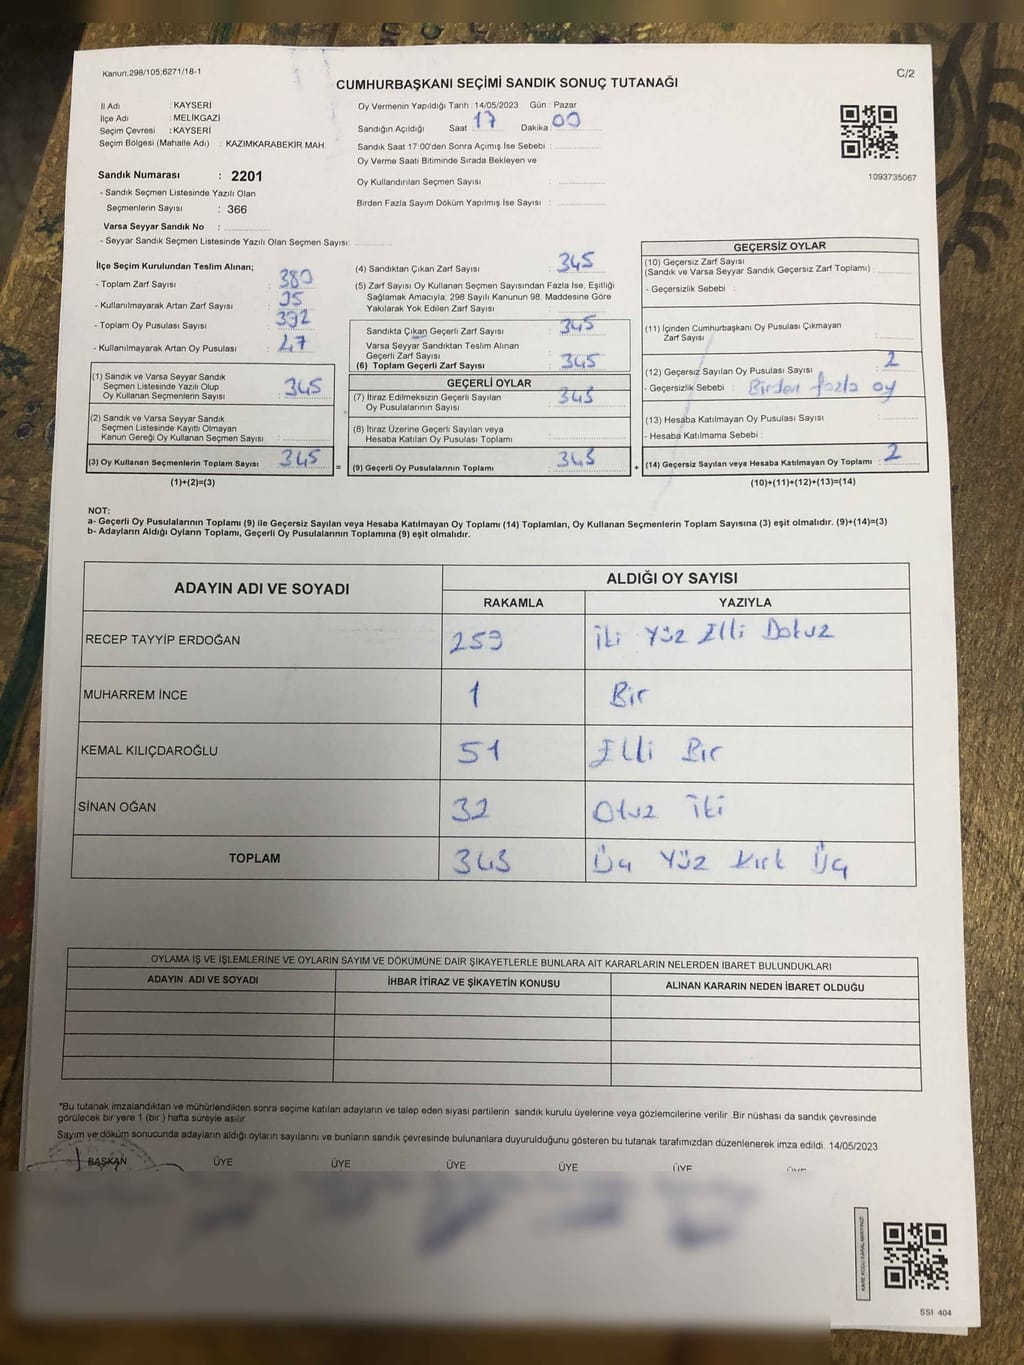 Kanun;298/105;6271/18-1
C/2
CUMHURBAŞKANI SEÇİMİ SANDIK SONUÇ TUTANAĞI
İl Adı : KAYSERİ
İlçe Adı : MELİKGAZİ
Seçim Çevresi : KAYSERİ
Seçim Bölgesi (Mahalle Adı) : KAZIMKARABEKİR MAH.
Sandık Numarası : 2201
- Sandık Seçmen Listesinde Yazılı Olan
Seçmenlerin Sayısı : 366
Varsa Seyyar Sandık No :
- Seyyar Sandık Seçmen Listesinde Yazılı Olan Seçmen Sayısı:
Oy Vermenin Yapıldığı Tarih : 14/05/2023 Gün : Pazar
Sandığın Açıldığı Saat 17 Dakika 00
Sandık Saat 17:00'den Sonra Açımış İse Sebebi :
Oy Verme Saati Bitiminde Sırada Bekleyen ve
Oy Kullandırılan Seçmen Sayısı :
Birden Fazla Sayım Döküm Yapılmış İse Sayısı :
1093735067
İlçe Seçim Kurulundan Teslim Alınan;
- Toplam Zarf Sayısı : 380
- Kullanılmayarak Artan Zarf Sayısı : 35
- Toplam Oy Pusulası Sayısı : 392
- Kullanılmayarak Artan Oy Pusulası : 47
(1) Sandık ve Varsa Seyyar Sandık
Seçmen Listesinde Yazılı Olup
Oy Kullanan Seçmenlerin Sayısı : 345
(2) Sandık ve Varsa Seyyar Sandık
Seçmen Listesinde Kayıtlı Olmayan
Kanun Gereği Oy Kullanan Seçmen Sayısı :
(3) Oy Kullanan Seçmenlerin Toplam Sayısı : 345
(1)+(2)=(3)
(4) Sandıktan Çıkan Zarf Sayısı : 345
(5) Zarf Sayısı Oy Kullanan Seçmen Sayısından Fazla İse, Eşitliği
Sağlamak Amacıyla; 298 Sayılı Kanunun 98. Maddesine Göre
Yakılarak Yok Edilen Zarf Sayısı :
Sandıkta Çıkan Geçerli Zarf Sayısı : 345
Varsa Seyyar Sandıktan Teslim Alınan
Geçerli Zarf Sayısı
(6) Toplam Geçerli Zarf Sayısı : 345
GEÇERLİ OYLAR
(7) İtiraz Edilmeksizin Geçerli Sayılan
Oy Pusulalarının Sayısı : 343
(8) İtiraz Üzerine Geçerli Sayılan veya
Hesaba Katılan Oy Pusulası Toplamı :
= (9) Geçerli Oy Pusulalarının Toplamı : 343
GEÇERSİZ OYLAR
(10) Geçersiz Zarf Sayısı
(Sandık ve Varsa Seyyar Sandık Geçersiz Zarf Toplamı) :
- Geçersizlik Sebebi :
(11) İçinden Cumhurbaşkanı Oy Pusulası Çıkmayan
Zarf Sayısı :
(12) Geçersiz Sayılan Oy Pusulası Sayısı : 2
- Geçersizlik Sebebi : Birden fazla oy
(13) Hesaba Katılmayan Oy Pusulası Sayısı :
- Hesaba Katılmama Sebebi :
+ (14) Geçersiz Sayılan veya Hesaba Katılmayan Oy Toplamı : 2
(10)+(11)+(12)+(13)=(14)
NOT:
a- Geçerli Oy Pusulalarının Toplamı (9) ile Geçersiz Sayılan veya Hesaba Katılmayan Oy Toplamı (14) Toplamları, Oy Kullanan Seçmenlerin Toplam Sayısına (3) eşit olmalıdır. (9)+(14)=(3)
b- Adayların Aldığı Oyların Toplamı, Geçerli Oy Pusulalarının Toplamına (9) eşit olmalıdır.
ADAYIN ADI VE SOYADI
ALDIĞI OY SAYISI
RAKAMLA YAZIYLA
RECEP TAYYİP ERDOĞAN 259 İki Yüz Elli Dokuz
MUHARREM İNCE 1 Bir
KEMAL KILIÇDAROĞLU 51 Elli Bir
SİNAN OĞAN 32 Otuz İki
TOPLAM 343 Üç Yüz Kırk Üç
OYLAMA İŞ VE İŞLEMLERİNE VE OYLARIN SAYIM VE DÖKÜMÜNE DAİR ŞİKAYETLERLE BUNLARA AİT KARARLARIN NELERDEN İBARET BULUNDUKLARI
ADAYIN ADI VE SOYADI İHBAR İTİRAZ VE ŞİKAYETİN KONUSU ALINAN KARARIN NEDEN İBARET OLDUĞU
*Bu tutanak imzalandıktan ve mühürlendikten sonra seçime katılan adayların ve talep eden siyasi partilerin sandık kurulu üyelerine veya gözlemcilerine verilir .Bir nüshası da sandık çevresinde
görülecek bir yere 1 (bir ) hafta süreyle asılır
Sayım ve döküm sonucunda adayların aldığı oyların sayılarını ve bunların sandık çevresinde bulunanlara duyurulduğunu gösteren bu tutanak tarafımızdan düzenlenerek imza edildi. 14/05/2023
BAŞKAN ÜYE ÜYE ÜYE ÜYE ÜYE
SSI 404